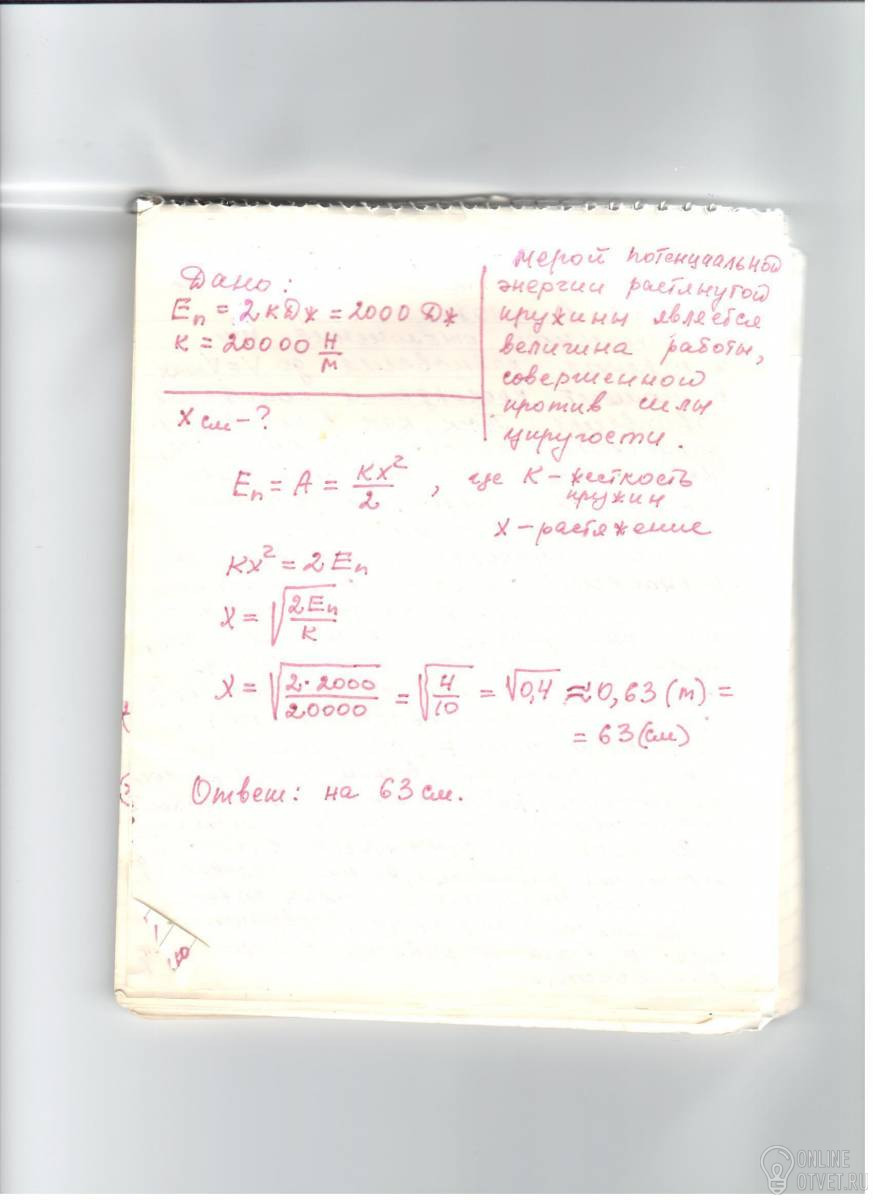 Дано:
Eп = 2 кДж = 2000 Дж
K = 20000 Н/м
X см - ?
мерой потенциальной
энергии растянутой
пружины является
величина работы,
совершенной
против силы
упругости.
Eп = A = KX²/2 , где K - жесткость
пружин
X - растяжение
KX² = 2Eп
X = √(2Eп/K)
X = √(2·2000/20000) = √(4/10) = √0,4 ≈ 0,63 (m) =
= 63 (см)
Ответ: на 63 см.
ONLINE
OTVET.RU